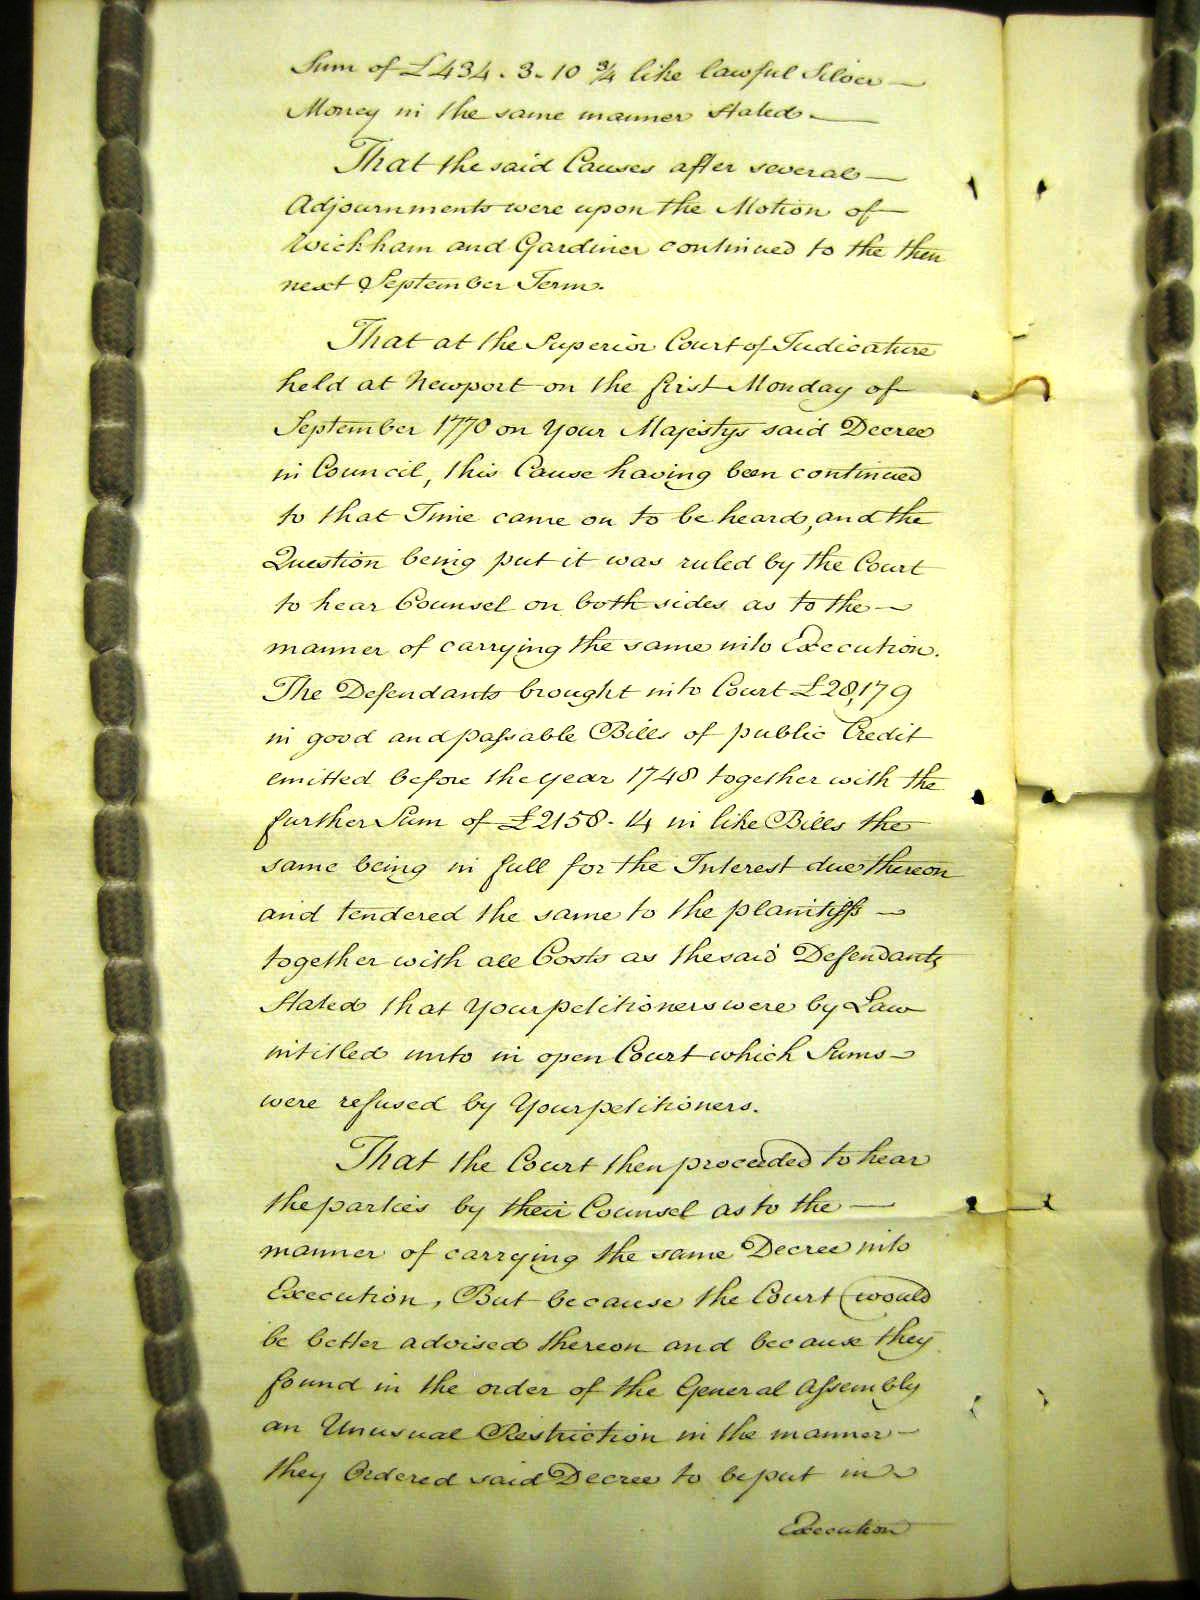 Sum of £434. 3. 10 3/4 like lawful Silver —
Money in the same manner stated —
That the said Causes after several —
Adjournments were upon the Motion of —
Wickham and Gardiner continued to the then
next September Term.
That at the Superior Court of Judicature
held at Newport on the first Monday of
September 1770 on Your Majestys said Decree
in Council, this Cause having been continued
to that Time came on to be heard, and the
Question being put it was ruled by the Court
to hear Counsel on both sides as to the —
manner of carrying the same into Execution.
The Defendants brought into Court £28,179
in good and passable Bills of public Credit
emitted before the year 1748 together with the
further Sum of £2158. 14 in like Bills the
same being in full for the Interest due thereon
and tendered the same to the plaintiffs —
together with all Costs as the said Defendants
Stated that Your petitioners were by Law
intitled unto in open Court which Sums —
were refused by Your petitioners.
That the Court then proceeded to hear
the parties by their Counsel as to the —
manner of carrying the same Decree into
Execution, But because the Court would
be better advised thereon and because they
found in the order of the General Assembly
an Unusual Restriction in the manner —
they Ordered said Decree to be put in —
Execution